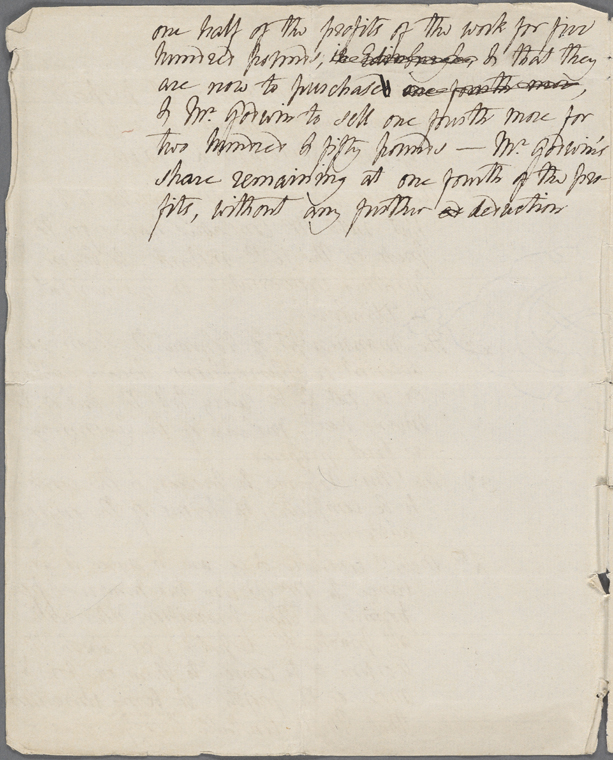 one half of the profits of the work for five
hundred pounds, in Edinburgh, & that they
are now to purchase one fourth more,
& Mr. Godwin to sell one fourth more for
two hundred & fifty pounds — Mr Godwin's
share remaining at one fourth of the pro
fits, without any further deduction